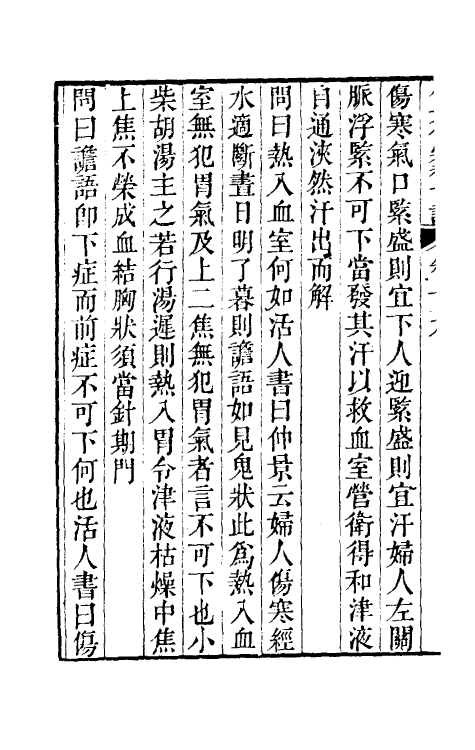 傷寒氣口緊盛則宜下人迎緊盛則宜汗婦人左關
脈浮緊不可下當發其汗以救血室營衛得和津液
自通浹然汗出而解
問曰熱入血室何如活人書曰仲景云婦人傷寒經
水適斷晝日明了暮則譫語如見鬼狀此為熱入血
室無犯胃氣及上二焦無犯胃氣者言不可下也小
柴胡湯主之若行湯遲則熱入胃令津液枯燥中焦
上焦不榮成血結胸狀須當針期門
問曰譫語卽下症而前症不可下何也活人書曰傷